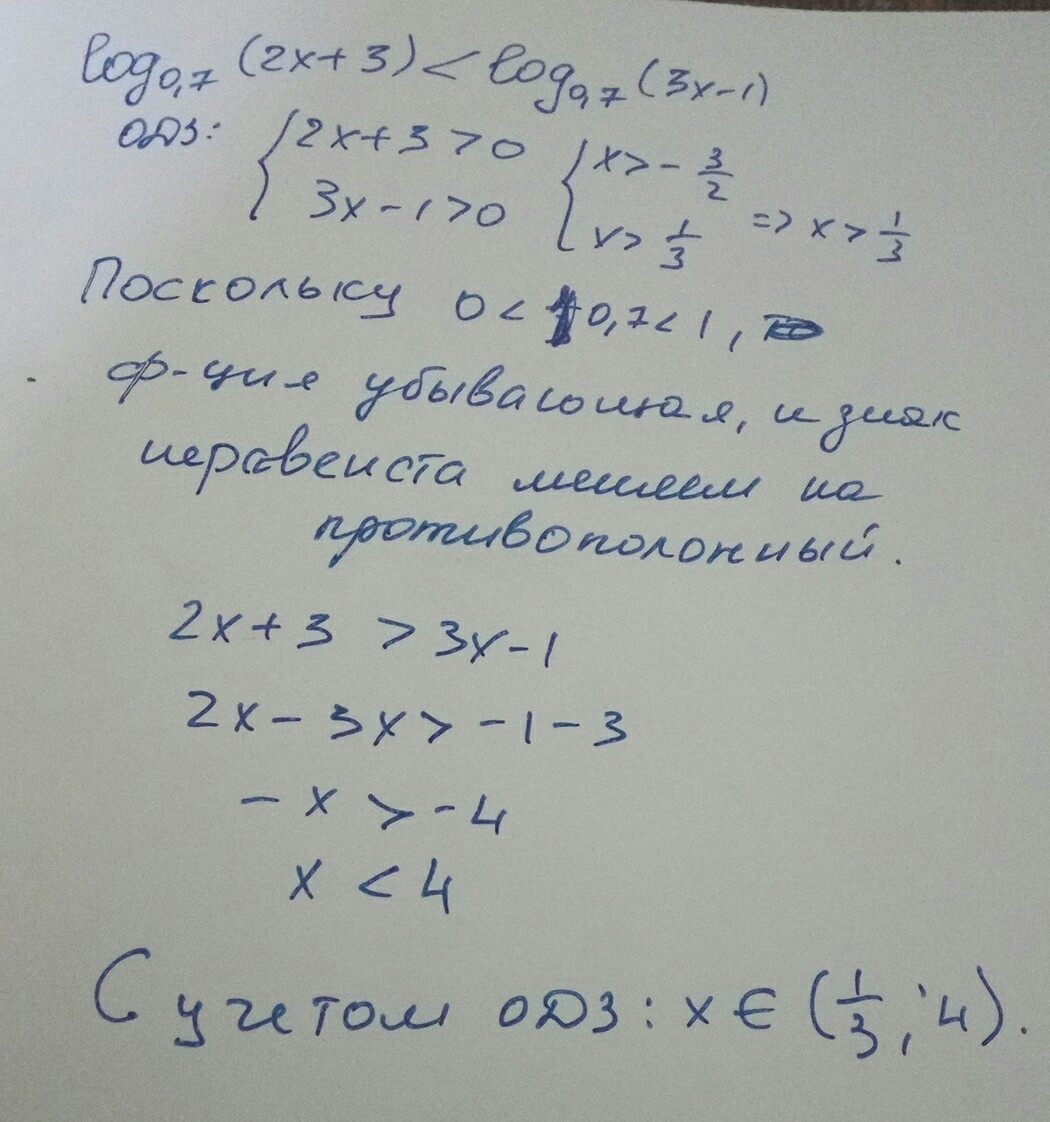 log₀,₇ (2x+3) < log₀,₇ (3x-1)
ОДЗ: { 2x+3 > 0 { x > - 3/2
3x-1 > 0 x > 1/3 => x > 1/3
Поскольку 0 < 0,7 < 1,
ф-ция убывающая, и знак
неравенста меняем на
противоположный.
2x+3 > 3x-1
2x - 3x > -1 - 3
- x > -4
x < 4
С учетом ОДЗ: x ∈ (1/3 ; 4).